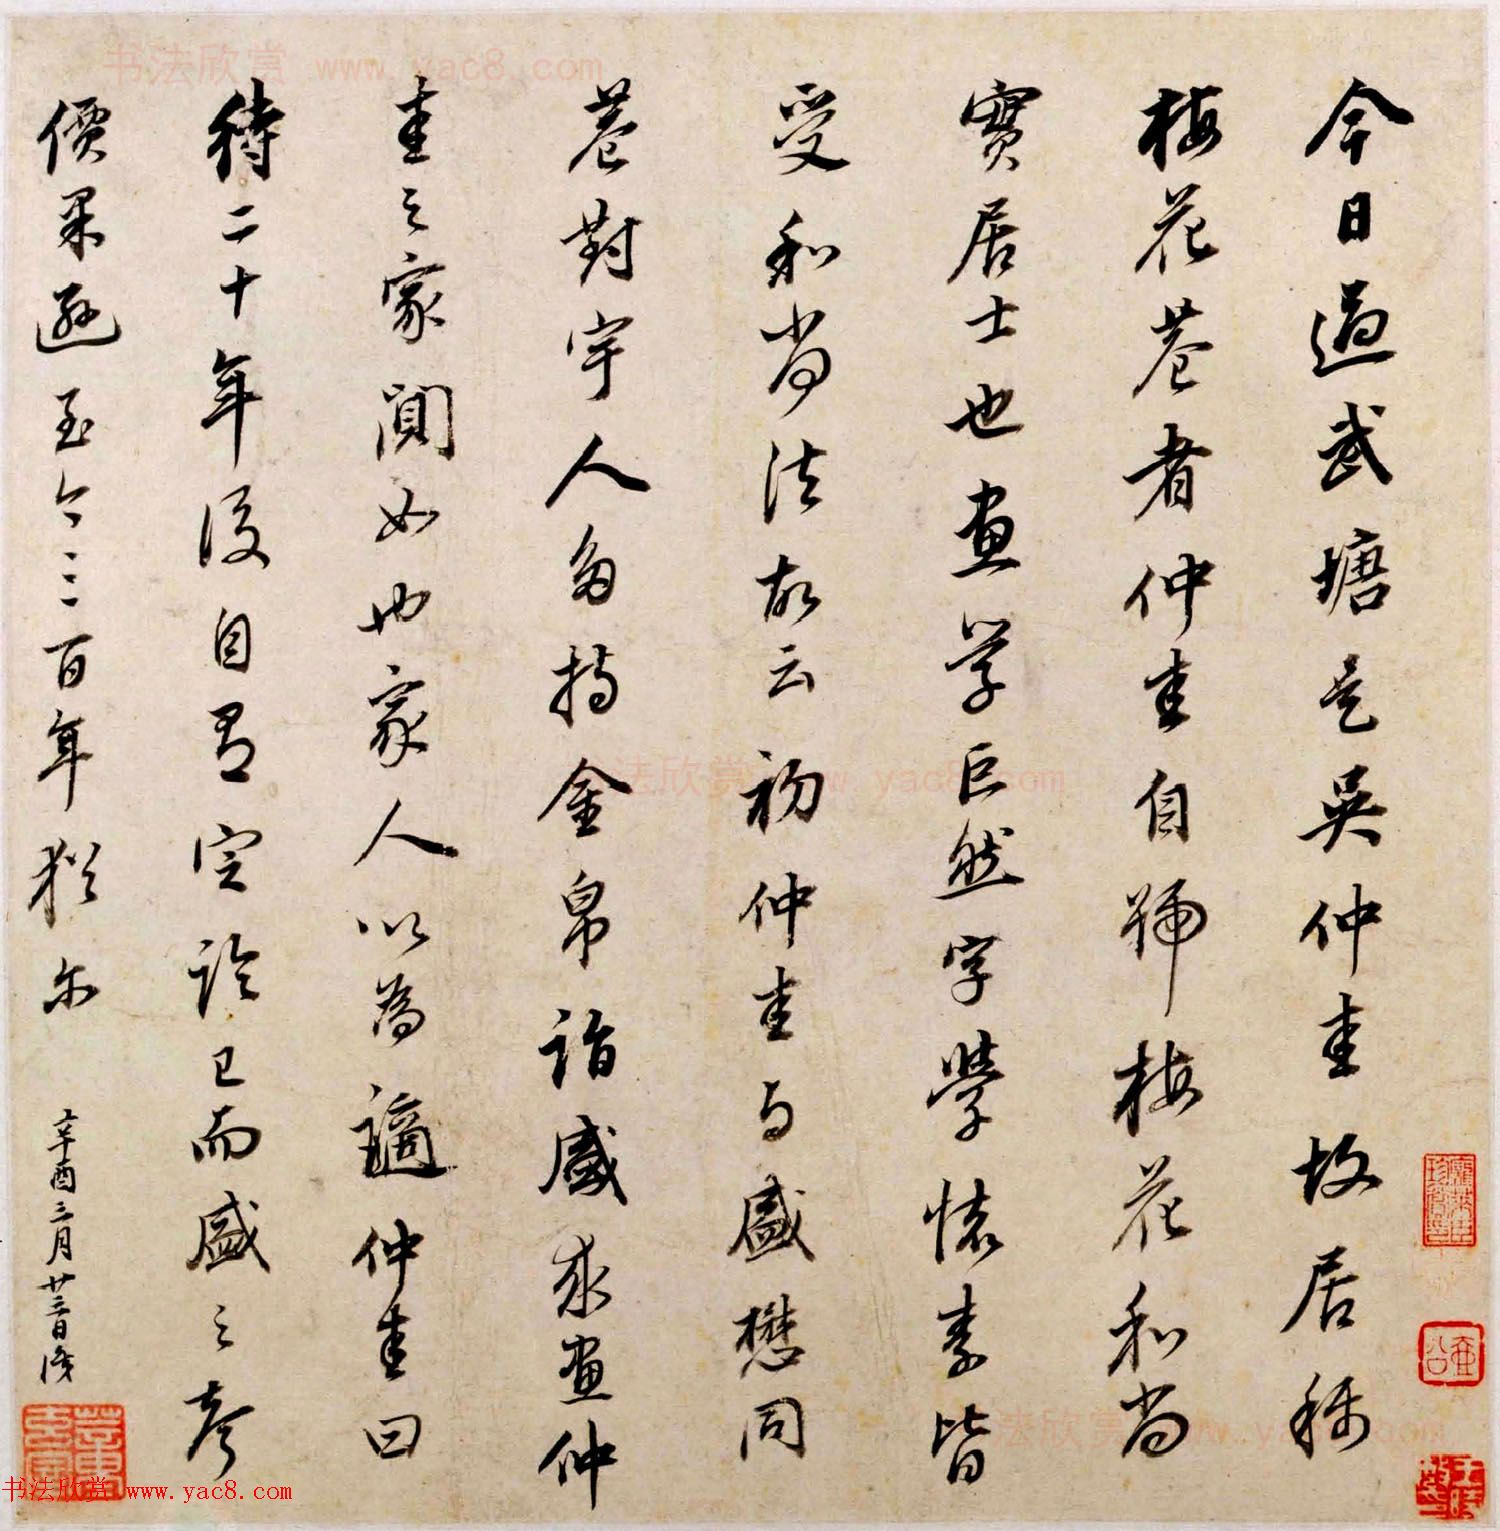 今日過武塘是吳仲圭故居稱
梅花菴者仲圭自號梅花和尚
實居士也畫學巨然字學懷素皆
受和尚法故云初仲圭與盛懋同
菴對宇人多持金帛詣盛求畫仲
圭之家闃如也家人以為謫仲圭曰
待二十年後自有定論已而盛之聲
價果遜至今三百年猶爾
辛酉三月廿三日識
书法欣赏 www.yac8.com
书法欣赏 www.yac8.com
书法欣赏 www.yac8.com
书法欣赏 www.yac8.com